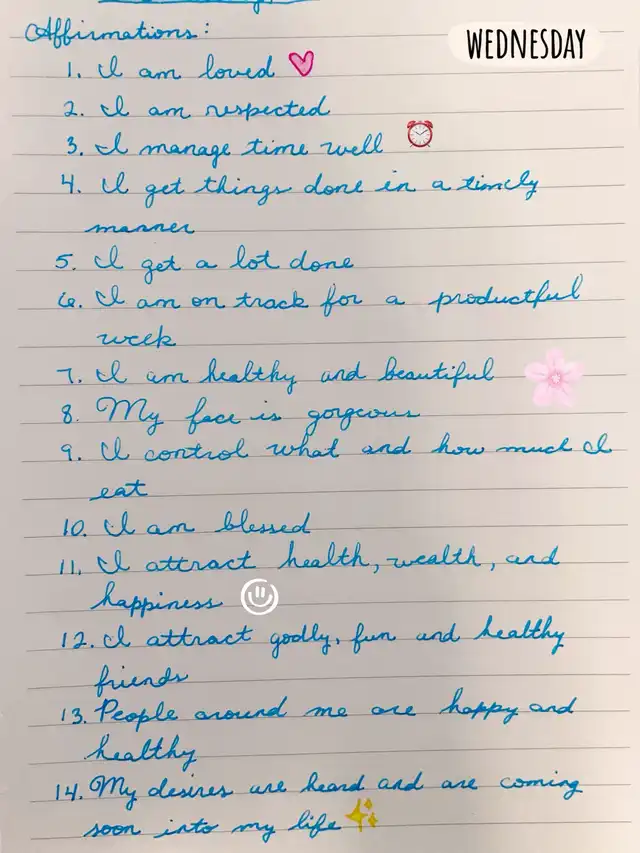 Affirmations:
WEDNESDAY
1. I am loved
2. I am respected
3. I manage time well
4. I get things done in a timely
manner
5. I get a lot done
6. I am on track for a productful
week
7. I am healthy and beautiful
8. My face is gorgeous
9. I control what and how much I
eat
10. I am blessed
11. I attract health, wealth, and
happiness
12. I attract godly, fun and healthy
friends
13. People around me are happy and
healthy
14. My desires are heard and are coming
soon into my life